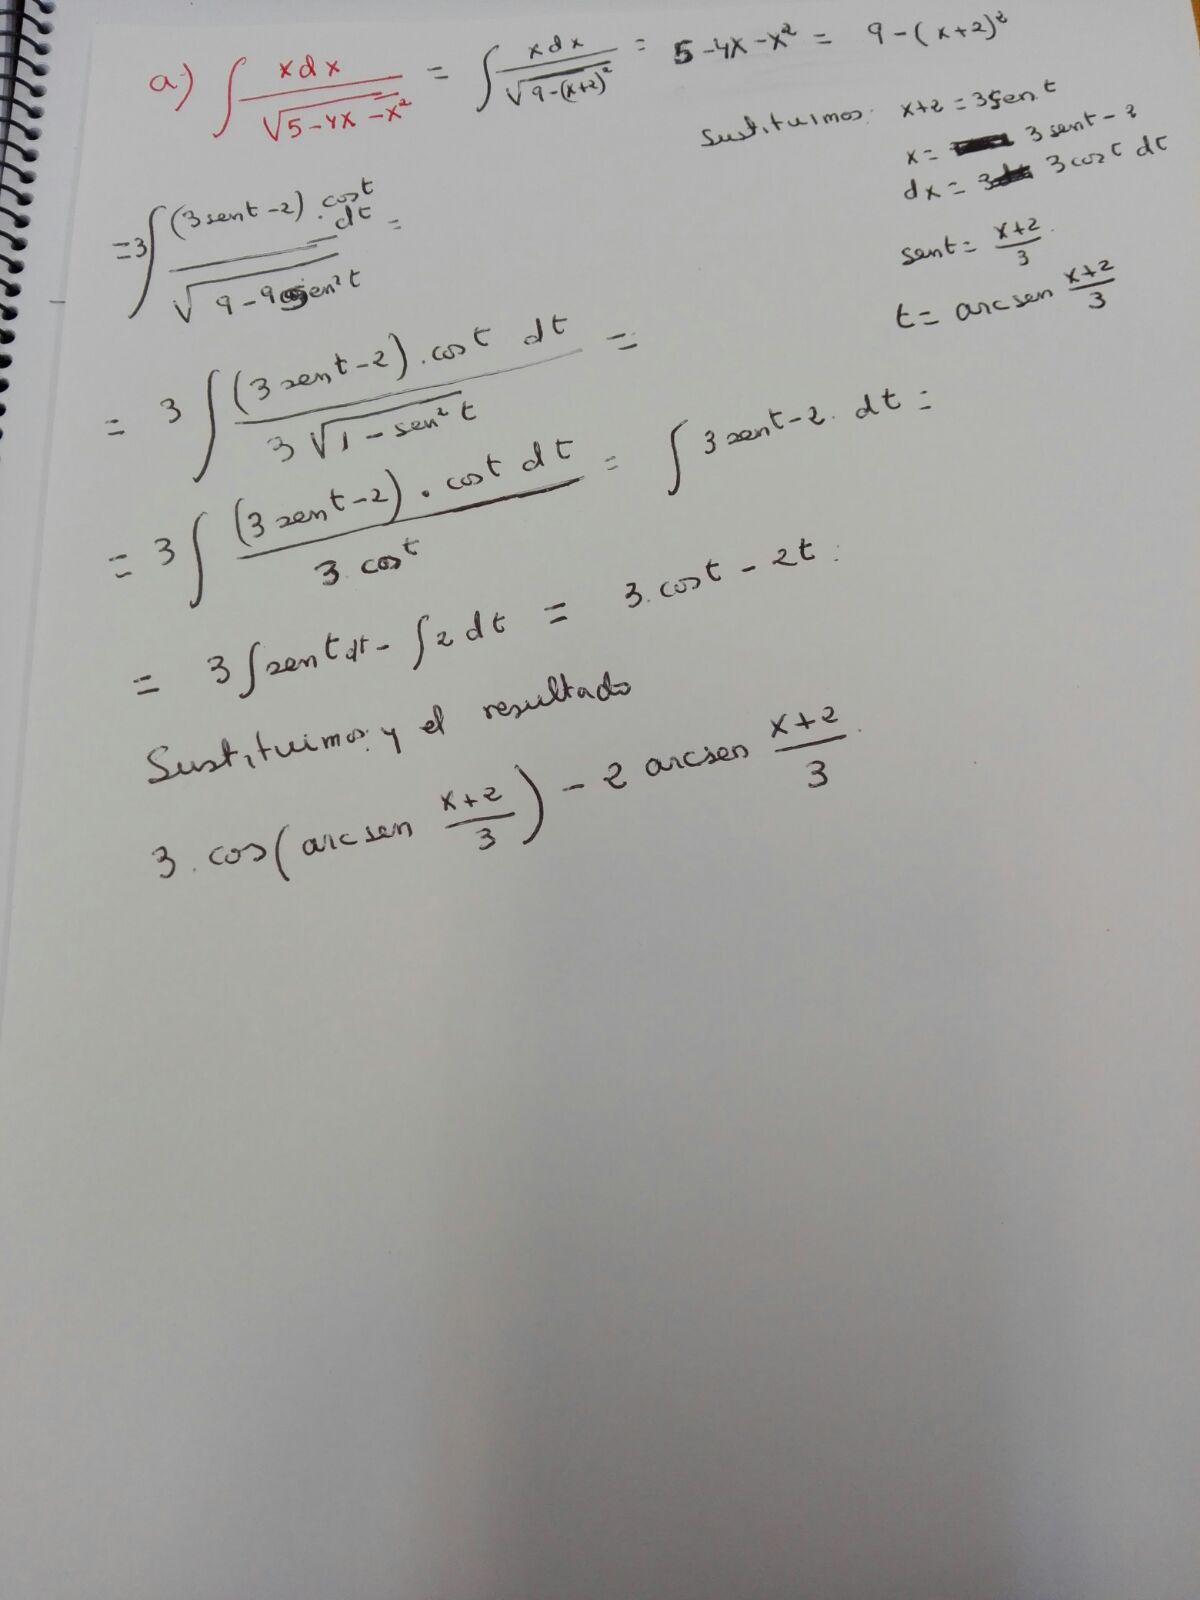 a) ∫ xdx / √5-4x-x² = ∫ xdx / √9-(x+2)² = 5-4x-x² = 9-(x+2)²
Sustituimos: x+2 = 3sen t
x = 3sent-2
dx = 3cost dt
sent = x+2 / 3
t = arcsen x+2 / 3
= 3∫ (3sent-2).cost.dt / √9-9sen²t =
= 3 ∫ (3sent-2).cost dt / 3√1-sen²t =
= 3 ∫ (3sent-2).cost dt / 3.cost = ∫ 3sent-2.dt =
= 3∫sent dt - ∫2dt = 3.cost-2t.
Sustituimos y el resultado
3.cos(arcsen x+2 / 3) - 2 arcsen x+2 / 3.